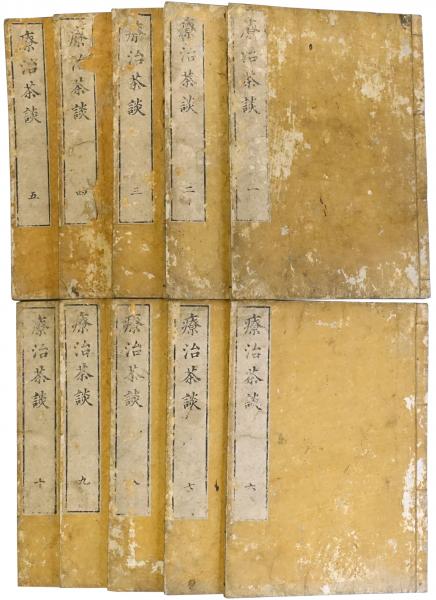 療治茶談 一
療治茶談 二
療治茶談 三
療治茶談 四
療治茶談 五
療治茶談 六
療治茶談 七
療治茶談 八
療治茶談 九
療治茶談 十